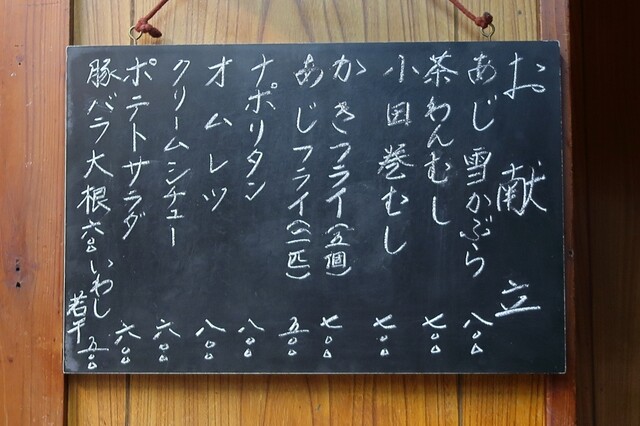 お献立
あじ雪かぶら 八〇〇
茶わんむし 七〇〇
小田巻むし 七〇〇
かきフライ(五個) 七〇〇
あじフライ(一匹) 五〇〇
ナポリタン 八〇〇
オムレツ 八〇〇
クリームシチュー 六〇〇
ポテトサラダ 六〇〇
豚バラ大根 六〇〇 いわし 若干 五〇〇